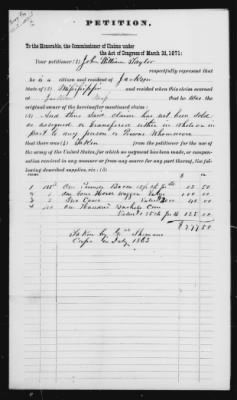 PETITION.
To the Honorable, the Commissioner of Claims under
the Act of Congress of March 3d, 1871:
Your petitioner (1) John William Taylor
respectfully represent that
he is a citizen and resident of Jackson
State of (2) Mississippi and resided when this claim accrued
at Jackson that he is the
original owner of the hereinafter mentioned claim:
(3) And that said claim has not been sold
or assigned or transferred either in whole or in
part to any person or Persons Whomsoever
that there was (4) taken from the petitioner for the use of
the army of the United States, for which no payment has been made, or compensa-
tion received in any manner or from any source for any part thereof, the fol-
lowing described supplies, viz: (5)
$ c.
1
2 One Horse Waggon
3 Two Cows Value 20 40 00
4 One Hundred Bushels Corn
Value 125 125 00
$
Taken by Gen Shermans
Corps in July 1863